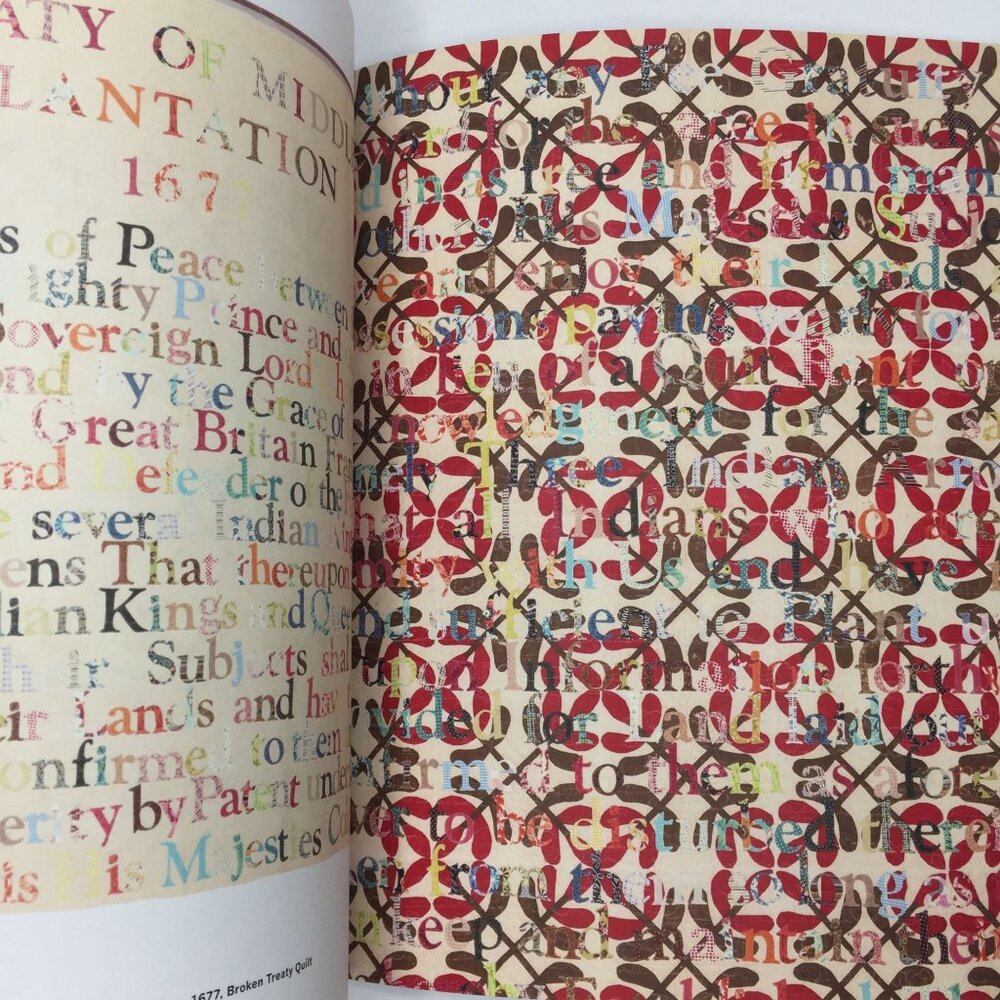 ATY OF MIDDL
LANTATION
1677
s of Peace between
ighty Prince and
Sovereign Lord h
ond by the Grace of
Great Britain Fra
nd Defender of the
e several Indian Kin
ens That thereupon
dian Kings and Que
their Subjects shal
eir Lands and hav
onfirmed to them
erity by Patent under
is His Majesties Co
1677, Broken Treaty Quilt
thout any Fee Gratuity
ward for the same in such
d in as free and firm man
others His Majesties Subje
e and enjoy their Lands
ssessions paying yearly for
in lieu of a Quit Rent or
knowledgment for the sa
mely Three Indian Arro
hat all Indians who are
mity with Us and have
nd sufficient to Plant u
upon Information forthw
vided for Land laid out
nfirmed to them as afores
ver to be disturbed there
en from them so long as
keep and maintain their